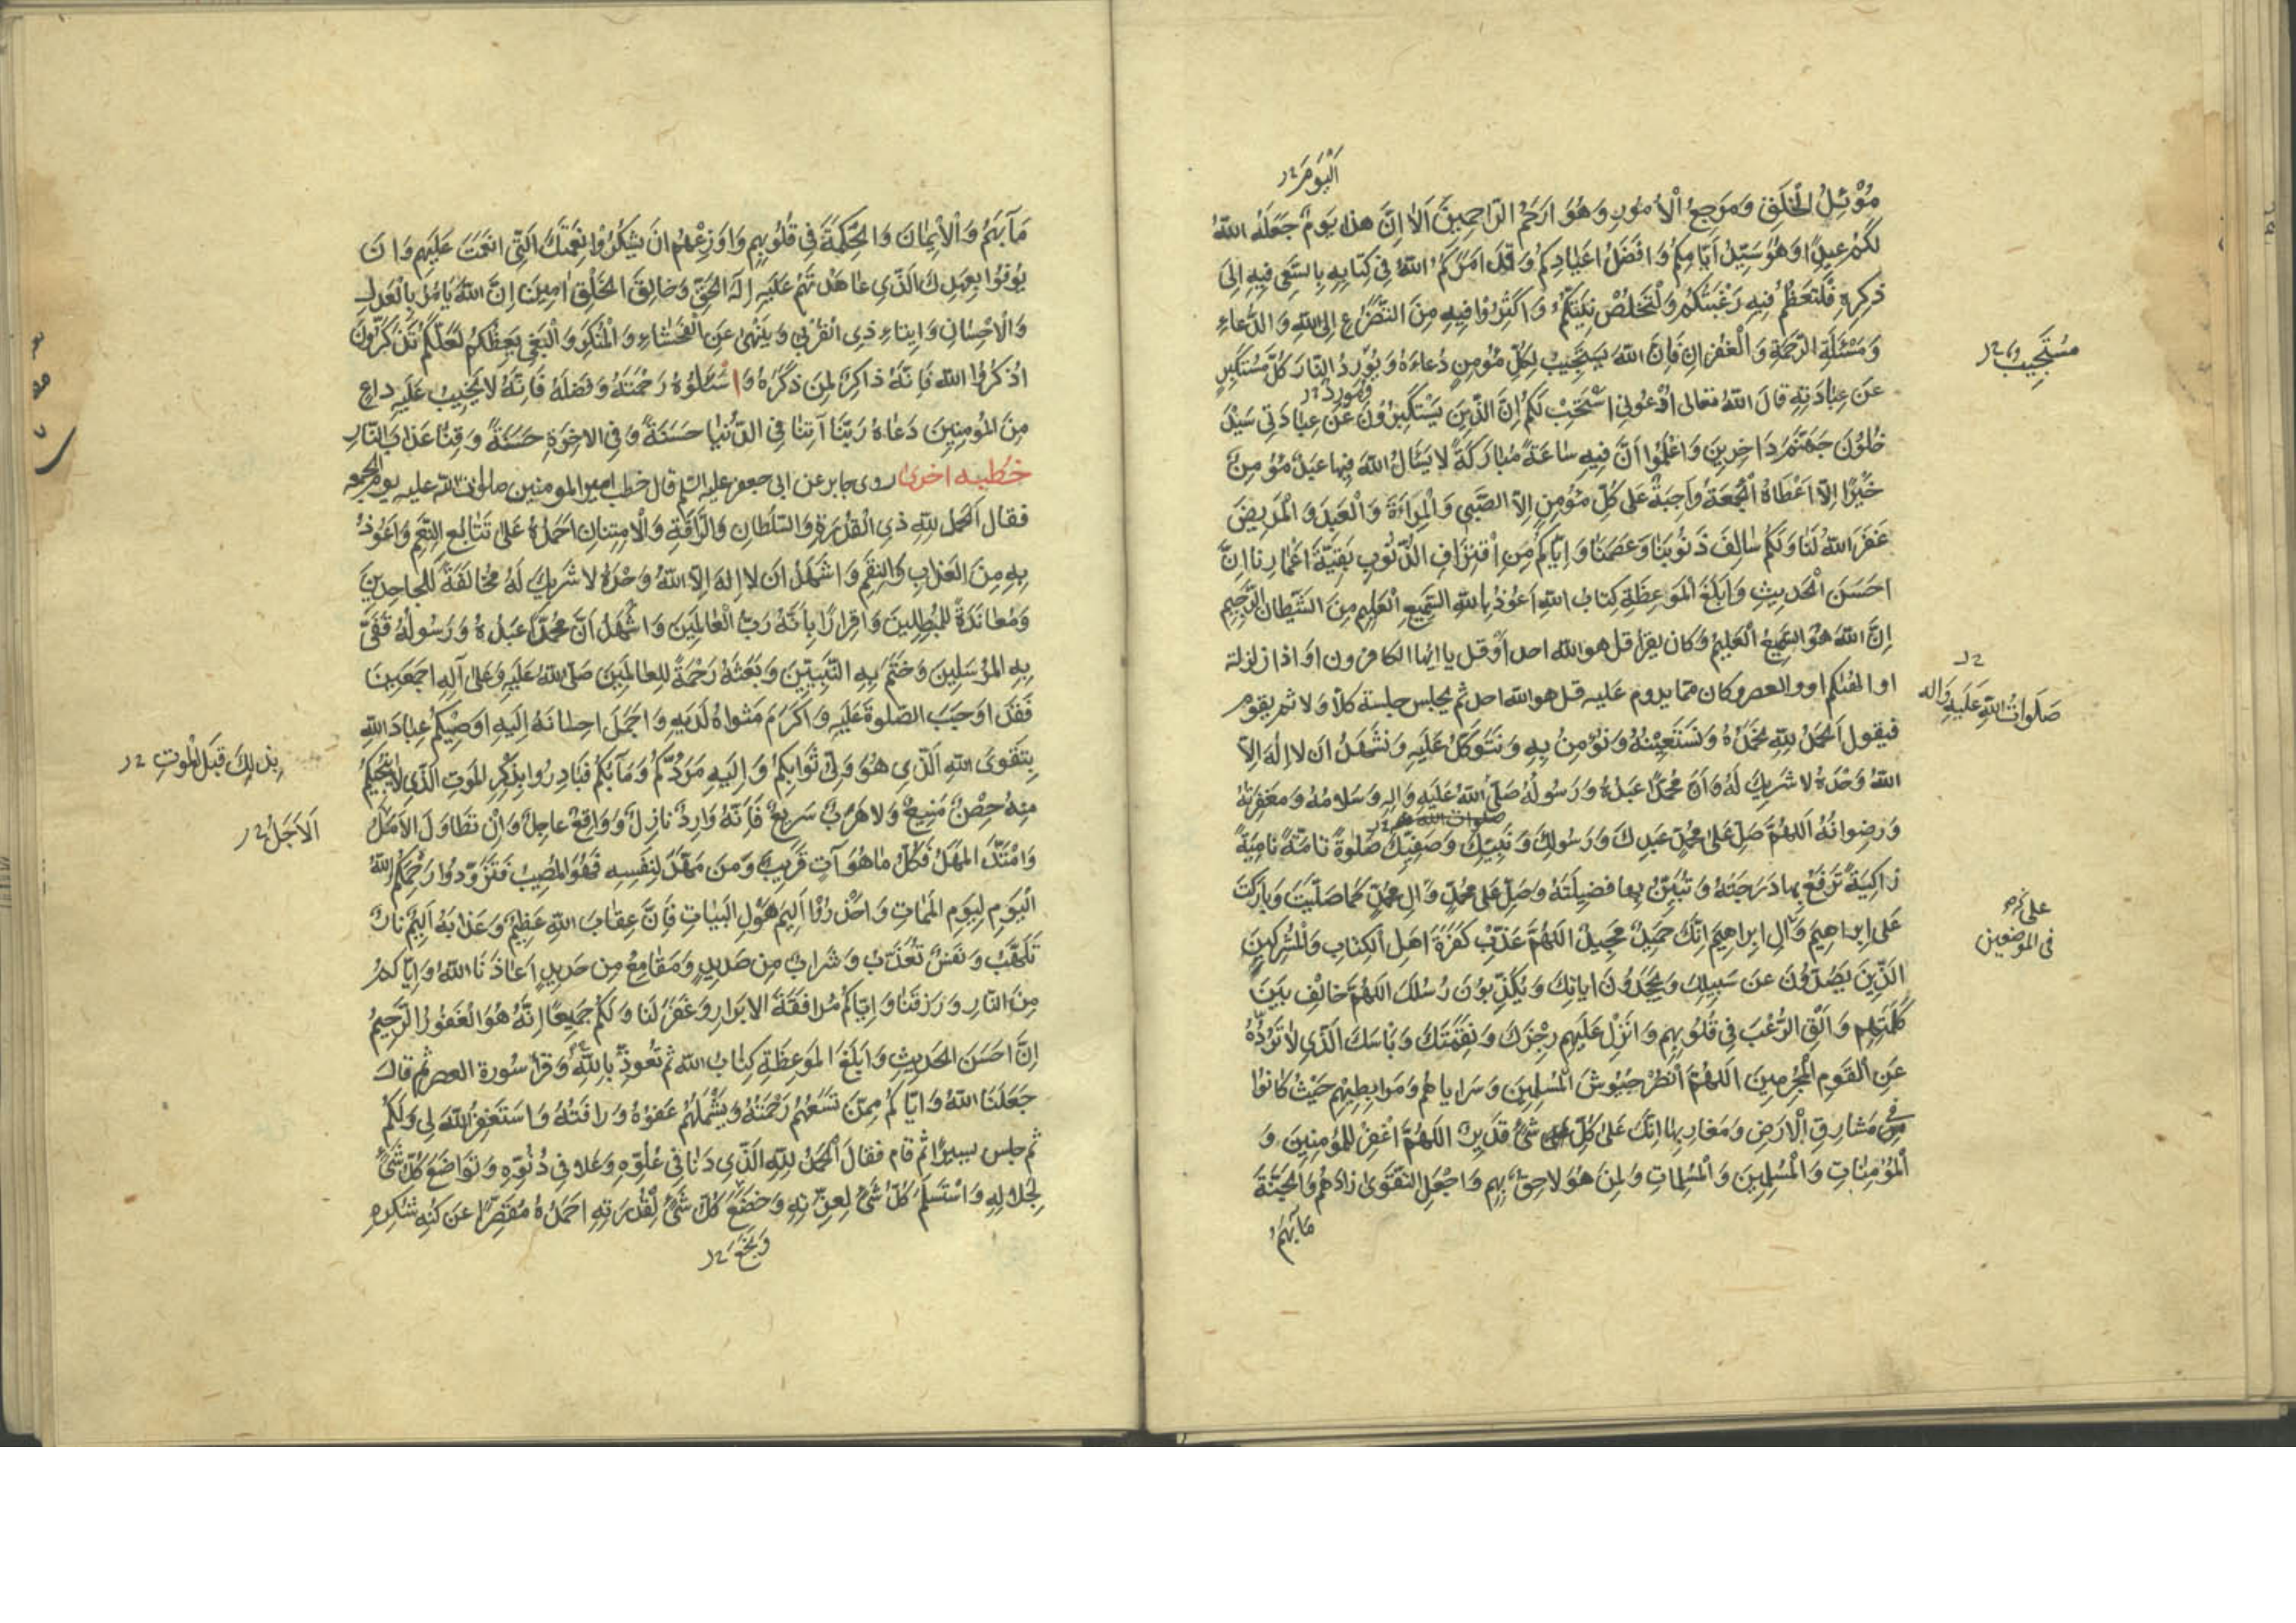 اَلْيَوْمَ خ ر
مُوْئِلُ الْخَلْقِ وَمَرْجِعُ الْاُمُورِ وَهُوَ اَرْحَمُ الرَّاحِمِينَ اَلَا اِنَّ هذا يَوْمٌ جَعَلَهُ اللهُ
لَكُمْ عِيدًا وَهُوَ سَيِّدُ اَيَّامِكُمْ وَاَفْضَلُ اَعْيَادِكُمْ وَقَدْ اَمَرَكُمُ اللهُ فِي كِتَابِهِ بِالسَّعْيِ فِيهِ اِلىَ
ذِكْرِهِ فَلْتَعْظُمْ فِيهِ رَغْبَتُكُمْ وَلْتَخْلُصْ نِيَّتُكُمْ وَاَكْثِرُوا فِيهِ مِنَ التَّضَرُّعِ اِلىَ اللهِ وَالدُّعَاءِ
وَمَسْئَلَةِ الرَّحْمَةِ وَالْغُفْرانِ فَاِنَّ اللهَ يَسْتَجِيبُ لِكُلِّ مُؤْمِنٍ دُعاءَهُ وَيُوْرِدُ النّارَ كُلَّ مُسْتَكْبِرٍ
مُسْتَجِيبٌ خ ر
عَنْ عِبادَتِهِ قالَ اللهُ تعالى اُدْعُونِي اَسْتَجِبْ لَكُمْ اِنَّ الَّذِينَ يَسْتَكْبِرُونَ عَنْ عِبَادَتِي سَيَدْ
خُلُونَ جَهَنَّمَ دَاخِرِينَ وَاعْلَمُوا اَنَّ فِيهِ سَاعَةً مُبَارَكَةً لا يَسْئَلُ اللهَ فِيها عَبْدٌ مُؤْمِنٌ
خَيْرًا اِلّا اَعْطَاهُ اَلْجُمُعَةُ وَاجِبَةٌ عَلى كُلِّ مُؤْمِنٍ اِلّا الصَّبِي وَالْمَراَةَ وَالْعَبْدَ وَالْمَرِيضَ
غَفَرَ اللهُ لَنا وَلَكُمْ سَالِفَ ذُنُوبِنَا وَعَصَمَنَا وَاِيَّاكُمْ مِنَ اقْتِرَافِ الذُّنُوبِ بَقِيَّةَ اَعْمَارِنا اِنَّ
اَحْسَنَ الْحَدِيثِ وَاَبْلَغَ الْمَوْعِظَةِ كِتابُ اللهِ اَعُوذُ بِاللهِ السَّمِيعِ الْعَلِيمِ مِنَ الشَّيْطانِ الرَّجِيمِ
اِنَّ اللهَ هُوَ السَّمِيعُ الْعَلِيمُ وَكان يقرا قل هو الله احد اَوْ قل يا ايها الكافرون او اذا زلزلة
او الهٰيكم او والعصر وكان ممّا يدوم عليه قل هو الله احد ثم يجلس جلسة كلا ولا ثم يقوم
خ ر
صَلَواتُ اللهِ عَلَيْهِ وَالِه
فيقول اَلْحَمْدُ لِلّهِ نَحْمَدُهُ وَنَسْتَعِيْنُهُ وَنُؤْمِنُ بِهِ وَنَتَوَكَّلُ عَلَيْهِ وَنَشْهَدُ اَنْ لا اِلهَ اِلّا
اللهُ وَحْدَهُ لا شَرِيكَ لَهُ وَاَنَّ مُحَمَّدًا عَبْدُهُ وَرَسُولُهُ صَلَّى اللهُ عَلَيْهِ وَالِهِ وَسَلامُهُ وَمَغْفِرَتُهُ
وَرِضوانُهُ اَللّهُمَّ صَلِّ عَلى مُحَمَّدٍ عَبْدِكَ وَرَسُولِكَ وَنَبِيِّكَ وَصَفِيِّكَ صَلوةً تامَّةً نامِيَةً
زاكِيَةً تَرْفَعُ بِها دَرَجَتَهُ وَتُبَيِّنُ بِها فَضِيلَتَهُ وَصَلِّ عَلى مُحَمَّدٍ وَالِ مُحَمَّدٍ كَما صَلَّيْتَ وَبارَكْتَ
عَلى اِبراهِيمَ وَآلِ اِبراهِيمَ اِنَّكَ حَمِيدٌ مَجِيدٌ اللهُمَّ عَذِّبْ كَفَرَةَ اَهْلِ الْكِتابِ وَالْمُشْرِكِينَ
فى الموضعين
الَّذِينَ يَصُدُّونَ عَنْ سَبِيلِكَ وَيَجْحَدُونَ اياتِكَ وَيُكَذِّبُونَ رُسُلَكَ اللهُمَّ خالِفْ بَيْنَ
كَلِمَتِهِم وَاَلْقِ الرُّعْبَ فِي قُلُوبِهِم وَاَنْزِلْ عَلَيْهِم رِجْزَكَ وَنِقْمَتَكَ وَبَأْسَكَ الَّذِي لا تَرُدُّهُ
عَنِ الْقَوْمِ الْمُجْرِمِينَ اَللهُمَّ انْصُرْ جُيُوشَ الْمُسْلِمِيَن وَسَراياهُم وَمَرابِطِيهِم حَيْثُ كانُوا
مِنْ مَشارِقِ الْاَرْضِ وَمَغارِبِها اِنَّكَ عَلى كُلِّ شَئٍ قَدِيرٌ اللهُمَّ اغْفِرْ لِلْمُؤْمِنِينَ وَ
اَلْمُؤْمِنٰاتِ وَالْمُسْلِمِينَ وَالْمُسْلِماتِ وَلِمَنْ هُوَ لاحِقٌ بِهِم وَاجْعَلِ التَّقْوىَ زادَهُم وَالْجَنَّةَ
مَآبَهُمْ
مَآبَهُمْ وَالْاِيمٰانَ وَالْحِكْمَةَ فِي قُلُوبِهِم وَاَوْزِعْهُمْ اَنْ يَشْكُرُوا نِعْمَتَكَ الَّتِي اَنْعَمْتَ عَلَيْهِم وَاَنْ
يُوفُوا بِعَهْدِكَ الَّذِي عاهَدْتَهُمْ عَلَيْهِ اِلهَ الْحَقِّ وَخالِقَ الْخَلْقِ امِينَ اِنَّ اللهَ يَاْمُرُ بِالْعَدْلِ
وَالْاِحْسانِ وَاِيتاءِ ذِي الْقُرْبى وَيَنْهى عَنِ الْفَحْشاءِ وَالْمُنْكَرِ وَالْبَغْيِ يَعِظُكُمْ لَعَلَّكُمْ تَذَكَّرُونَ
اُذْكُرُوا الله فَاِنَّهُ ذاكِرٌ لِمَنْ ذَكَرَهُ وَاسْئَلُوهُ رَحْمَتَهُ وَفَضْلَهُ فَاِنَّهُ لا يَخِيبُ عَلَيْهِ داعٍ
مِنَ الْمُؤْمِنِينَ دَعاهُ رَبَّنا آتِنا فِي الدُّنْيا حَسَنَةً وَفِي الاخِرَةِ حَسَنَةً وَقِنا عَذابَ النّارِ
خطبه اخرى روى جابر عن ابى جعفر عليه السّلم قال خطب امير المومنين صلوات الله عليه يوم الجمعه
فقال اَلْحَمْدُ لِلّهِ ذِي الْقُدْرَةِ وَالسُّلْطانِ وَالرَّاْفَةِ وَالْاِمْتِنانِ اَحْمَدُهُ عَلى تَتابُعِ النِّعَمِ وَاَعُوذُ
بِهِ مِنَ الْعَذابِ وَالنِّقَمِ وَاَشْهَدُ اَنْ لا اِلهَ اِلَّا اللهُ وَحْدَهُ لا شَرِيكَ لَهُ مُخالَفَةً لِلْجاحِدِينَ
وَمُعانَدَةً لِلْمُبْطِلِينَ وَاِقرارًا بِاَنَّهُ رَبُّ الْعالَمِينَ وَاَشْهَدُ اَنَّ مُحَمَّدًا عَبْدُهُ وَرَسُولُهُ قَفّى
بِهِ الْمُرْسَلِينَ وَخَتَمَ بِهِ النَّبِيّينَ وَبَعَثَهُ رَحْمَةً لِلْعالَمِينَ صَلّى اللهُ عَلَيْهِ وَعَلى آلِهِ اَجْمَعِينَ
فَقَدْ اَوْجَبَ الصَّلوةَ عَلَيْهِ وَاَكْرَمَ مَثْواهُ لَدَيْهِ وَاَجْمَلَ اِحسانَهُ اِلَيْهِ اُوصِيكُمْ عِبادَ اللهِ
بِتَقْوَى اللهِ الَّذِي هُوَ وَلِيُّ ثَوابِكُمْ وَاِلَيْهِ مَرَدُّكُمْ وَمَآبُكُمْ فَبادِرُوا بِذِكْرِ الْمَوْتِ الَّذِي لا يُنْجِيكُمْ
بِذلِكَ قَبْلَ الْمَوْتِ خ ر
مِنْهُ حِصْنٌ مَنِيعٌ وَلا هَرَبٌ سَرِيعٌ فَاِنَّهُ وَارِدٌ نازِلٌ وَوَاقِعٌ عاجِلٌ وَاِنْ تَطاوَلَ الاَمَدُ
اَلاَجَلُ خ ر
وَامْتَدَّ الْمَهَلُ فَكُلُّ ما هُوَ آتٍ قَرِيبٌ وَمَنْ مَهَّدَ لِنَفْسِهِ فَهُوَ الْمُصِيبُ فَتَزَوَّدُوا رَحِمَكُمُ اللهُ
الْيَوْمَ لِيَوْمِ الْمَماتِ وَاحْذَرُوا اَلِيمَ هَوْلِ الْبَياتِ فَاِنَّ عِقابَ اللهِ عَظِيمٌ وَعَذابَهُ اَلِيمٌ نارٌ
تَلَهَّبُ وَنَفْسٌ تُعَذَّبُ وَشَرابٌ مِنْ صَدِيدٍ وَمَقامِعُ مِنْ حَدِيدٍ اَعاذَنَا اللهُ وَاِيّاكم
مِنَ النّارِ وَرَزَقَنا وَاِيّاكُمْ مُرافَقَةَ الاَبْرارِ وَغَفَرَ لَنا وَلَكُمْ جَمِيعًا اِنَّهُ هُوَ الْغَفُورُ الرَّحِيمُ
اِنَّ اَحْسَنَ الْحَدِيثِ وَاَبْلَغَ الْمَوْعِظَةِ كِتابُ الله ثم تعوذ بالله وقرأ سورة العصر ثم قال
جَعَلَنَا اللهُ وَاِيّاكُمْ مِمَّنْ تَسَعُهُمْ رَحْمَتُهُ وَيَشْمَلُهُمْ عَفْوُهُ وَرَاْفَتُهُ وَاَسْتَغْفِرُ اللهَ لِي وَلَكُمْ
ثم جلس يسيرًا ثم قام فقال اَلْحَمْدُ لِلّهِ الَّذِي دَنا فِي عُلُوِّهِ وَعَلا فِي دُنُوِّهِ وَتَواضَعَ كُلُّ شَئٍ
لِجَلالِهِ وَاسْتَسْلَمَ كُلُّ شَئٍ لِعِزَّتِهِ وَخَضَعَ كُلُّ شَئٍ لِقُدْرَتِهِ اَحْمَدُهُ مُقَصِّرًا عَنْ كُنْهِ شُكْرِهِ
وَبَخَعَ خ ر